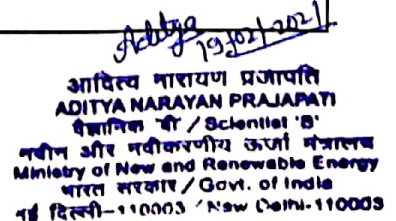 Aditya
19/02/2021
आदित्य नारायण प्रजापति
ADITYA NARAYAN PRAJAPATI
वैज्ञानिक 'बी' / Scientist 'B'
नवीन और नवीकरणीय ऊर्जा मंत्रालय
Ministry of New and Renewable Energy
भारत सरकार / Govt. of India
नई दिल्ली-110003 / New Delhi-110003